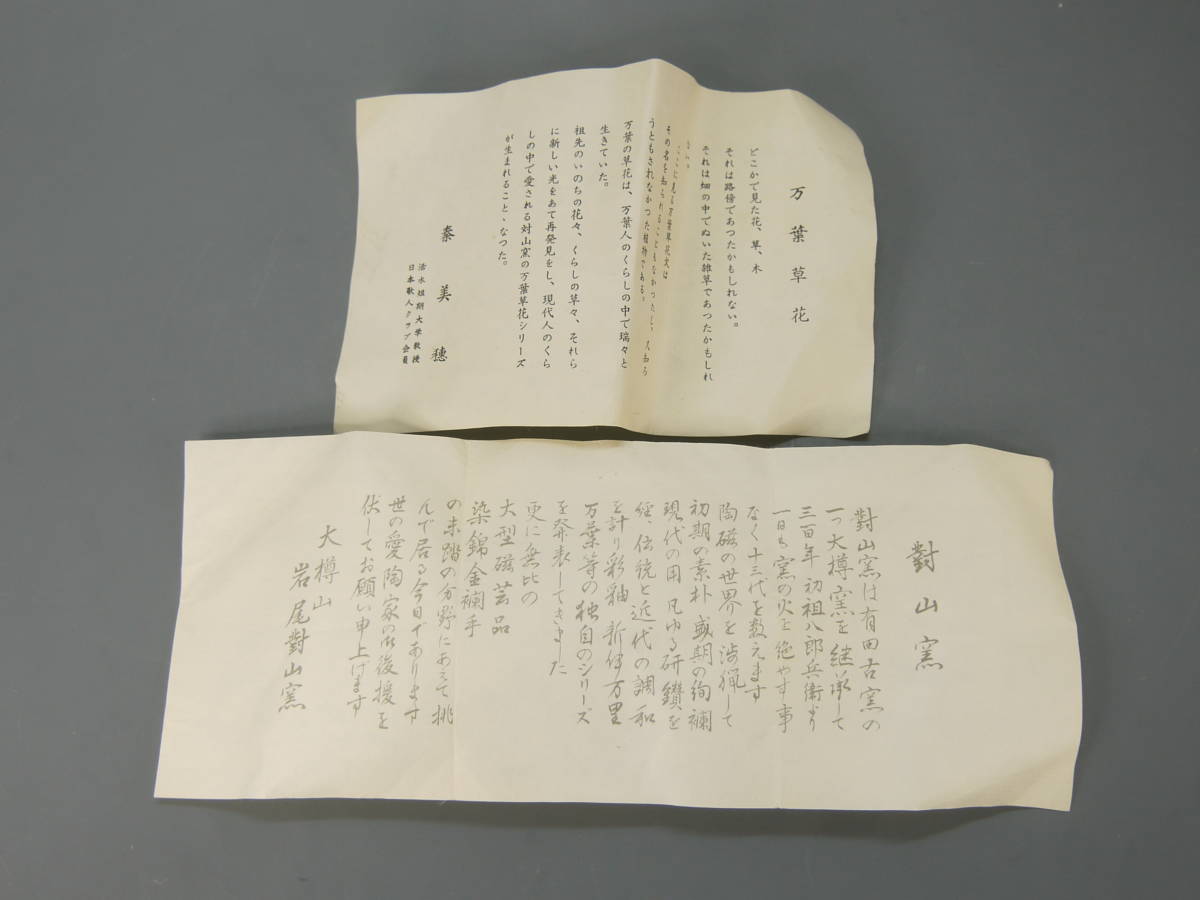 万葉草花
どこかで見た花、草、木
それは路傍であつたかもしれない。
それは畑の中でぬいた雑草であつたかもしれ
ない。
ここに見る万葉草花文は
その名を知られることもなかつたし、又知ら
うともされなかつた植物である。
万葉の草花は、万葉人のくらしの中で瑞々と
生きていた。
祖先のいのちの花々、くらしの草々、それら
に新しい光をあて再発見をし、現代人のくら
しの中で愛される対山窯の万葉草花シリーズ
が生まれることゝなつた。
秦美穂
活水短期大学教授
日本歌人クラブ会員
對山窯
對山窯は有田古窯の
一つ大樽窯を継承して
三百年初祖八郎兵衛より
一日も窯の火を絶やす事
なく十三代を数えます
陶磁の世界を渉猟して
初期の素朴盛期の絢襴
現代の用凡ゆる研鑽を
経、伝統と近代の調和
を計り彩釉新伊万里
万葉等の独自のシリーズ
を発表してきました
更に無比の
大型磁芸品
染錦金襴手
の未踏の分野にあえて挑
んで居る今日であります
世の愛陶家の御後援を
伏してお願い申し上げます
大樽山
岩尾對山窯